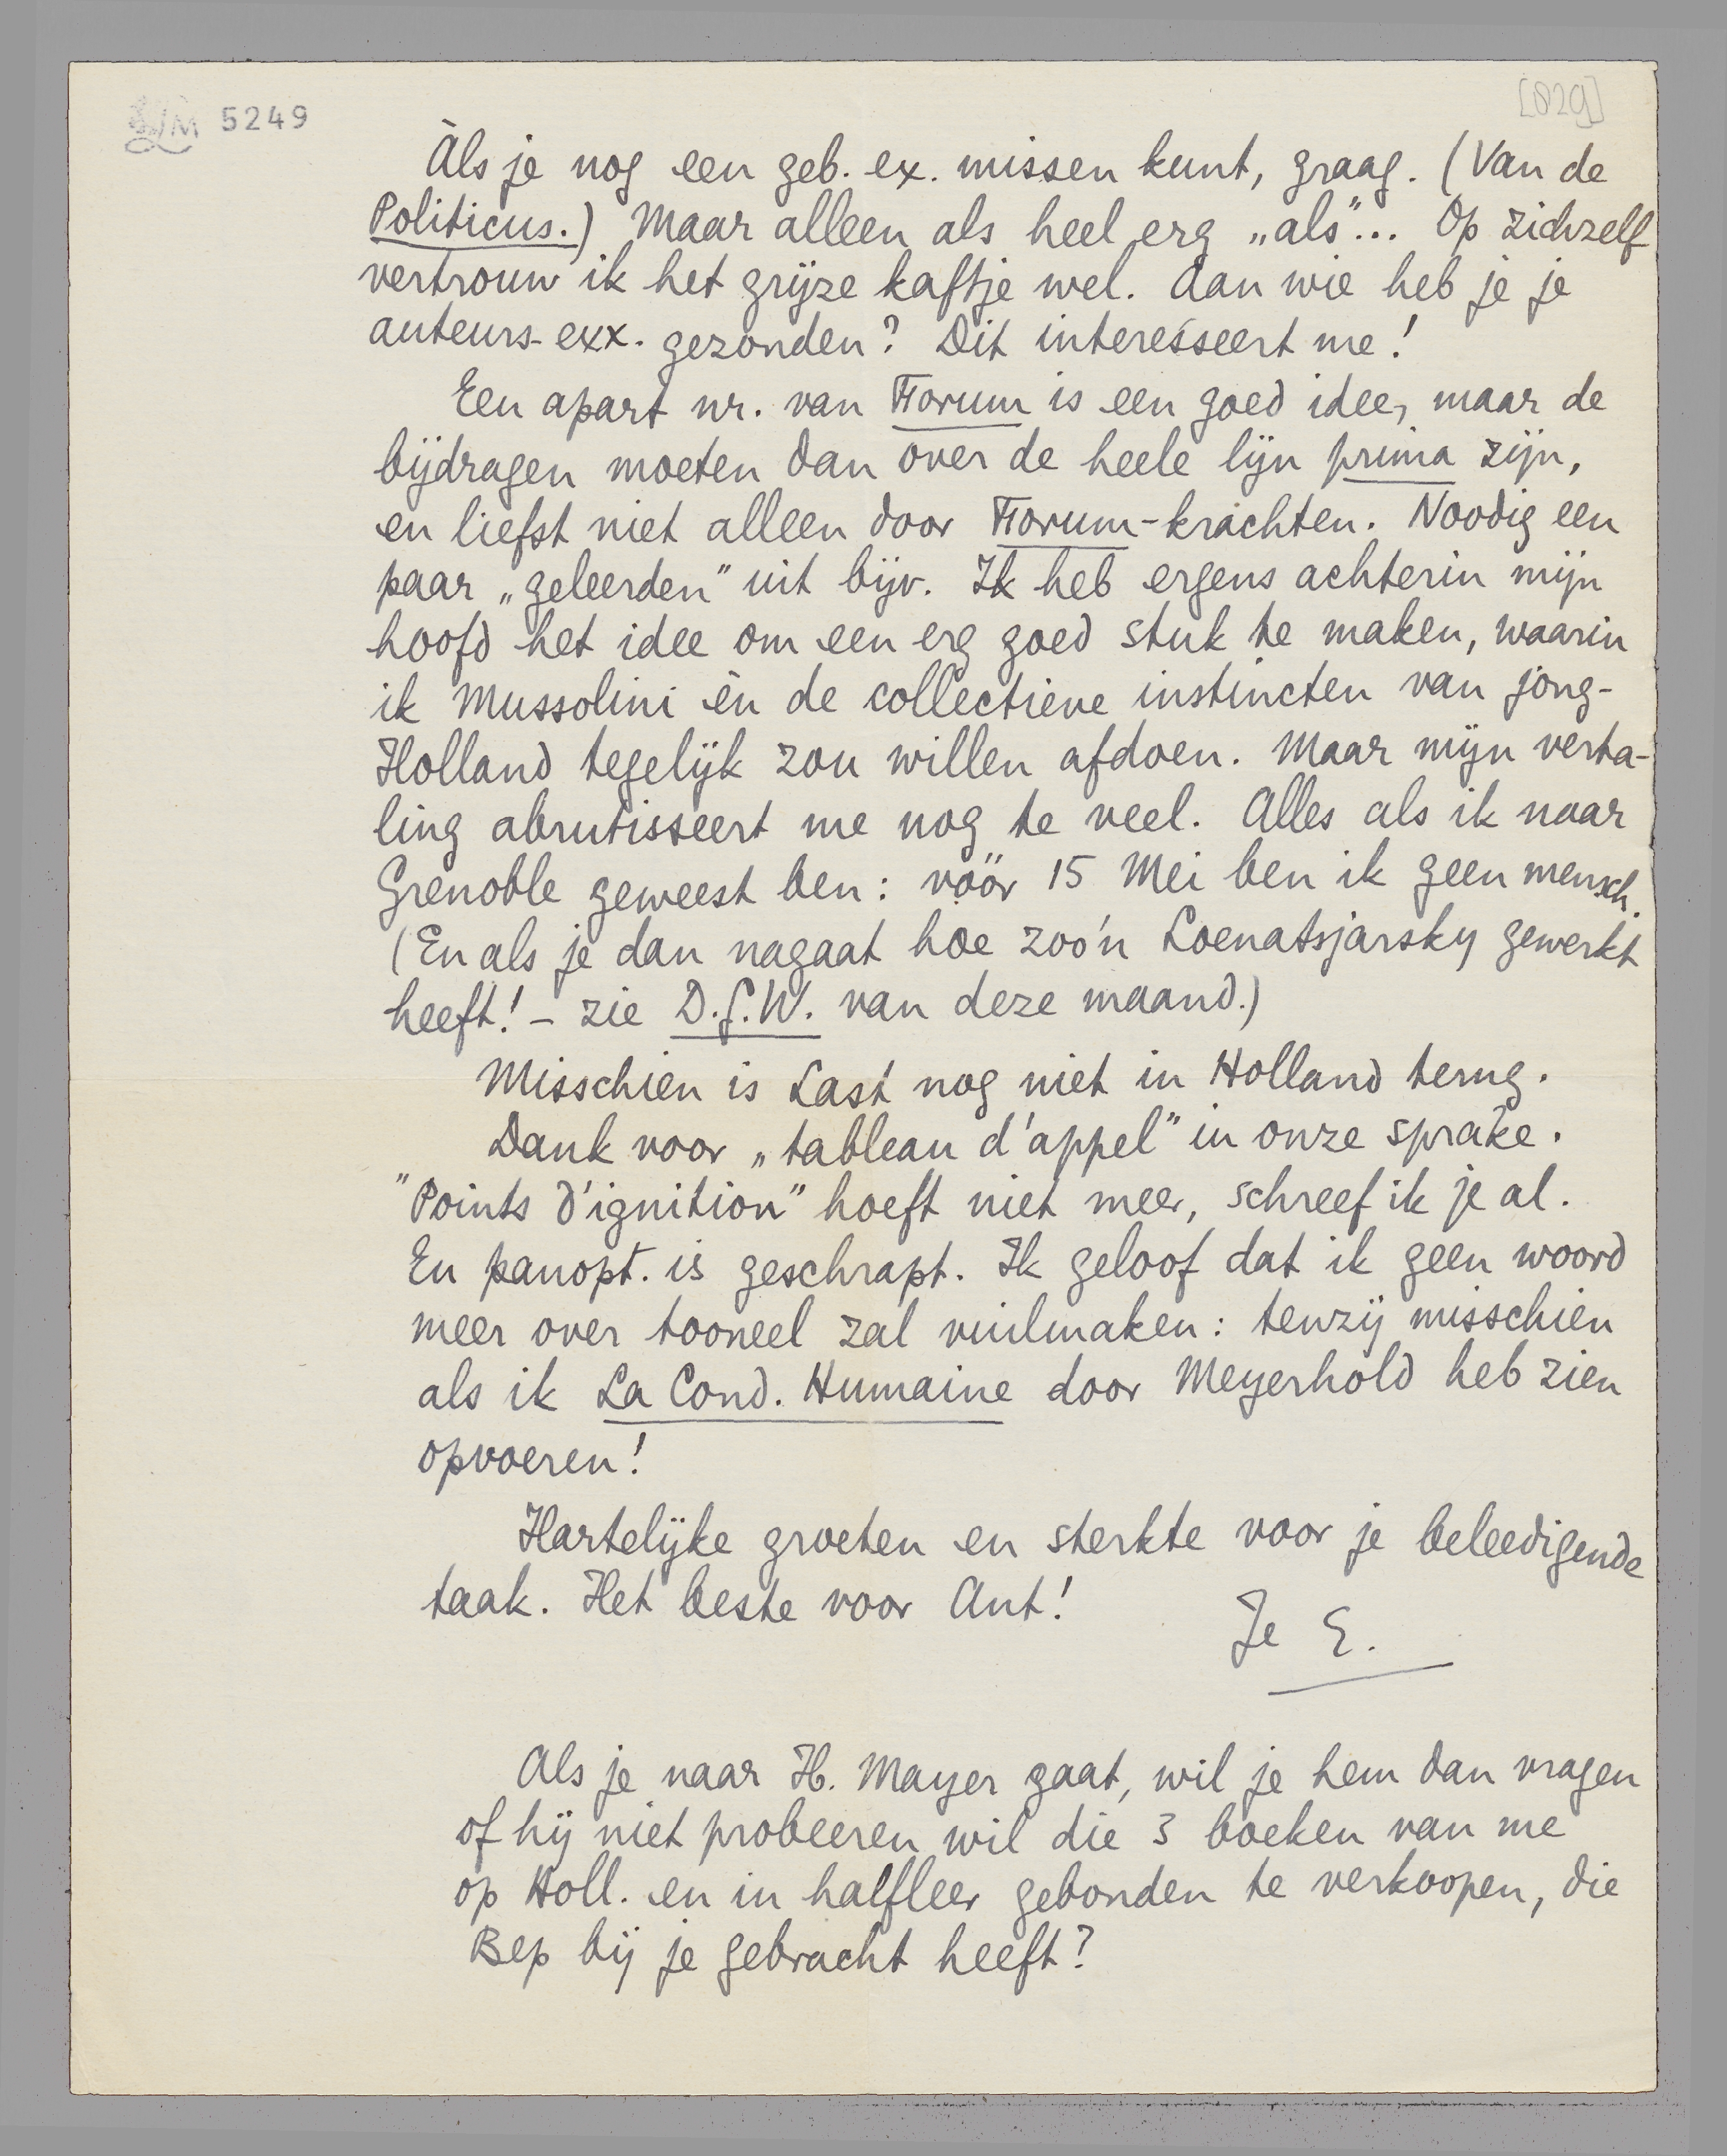 LM 5249
[829]
Àls je nog een geb. ex. missen kunt, graag. (Van de
Politicus.) Maar alleen als heel erg „als"... Op zichzelf
vertrouw ik het grijze kaftje wel. Aan wie heb je je
auteurs-exx. gezonden? Dit interesseert me!
Een apart nr. van Forum is een goed idee, maar de
bijdragen moeten dan over de heele lijn prima zijn,
en liefst niet alleen door Forum-krachten. Noodig een
paar „geleerden" uit bijv. Ik heb ergens achterin mijn
hoofd het idee om een erg goed stuk te maken, waarin
ik Mussolini èn de collectieve instincten van jong-
Holland tegelijk zou willen afdoen. Maar mijn verta-
ling abrutisseert me nog te veel. Alles als ik naar
Grenoble geweest ben: vóór 15 Mei ben ik geen mensch.
(En als je dan nagaat hoe zoo'n Loenatsjarsky gewerkt
heeft! – zie D.G.W. van deze maand.)
Misschien is Last nog niet in Holland terug.
Dank voor „tableau d'appel" in onze sprake.
"Points d'ignition" hoeft niet meer, schreef ik je al.
En panopt. is geschrapt. Ik geloof dat ik geen woord
meer over tooneel zal vuilmaken: tenzij misschien
als ik La Cond. Humaine door Meyerhold heb zien
opvoeren!
Hartelijke groeten en sterkte voor je beleedigende
taak. Het beste voor Ant!
Je E.
Als je naar H. Mayer gaat, wil je hem dan vragen
of hij niet probeeren wil die 3 boeken van me
op Holl. en in halfleer gebonden te verkoopen, die
Bep bij je gebracht heeft?